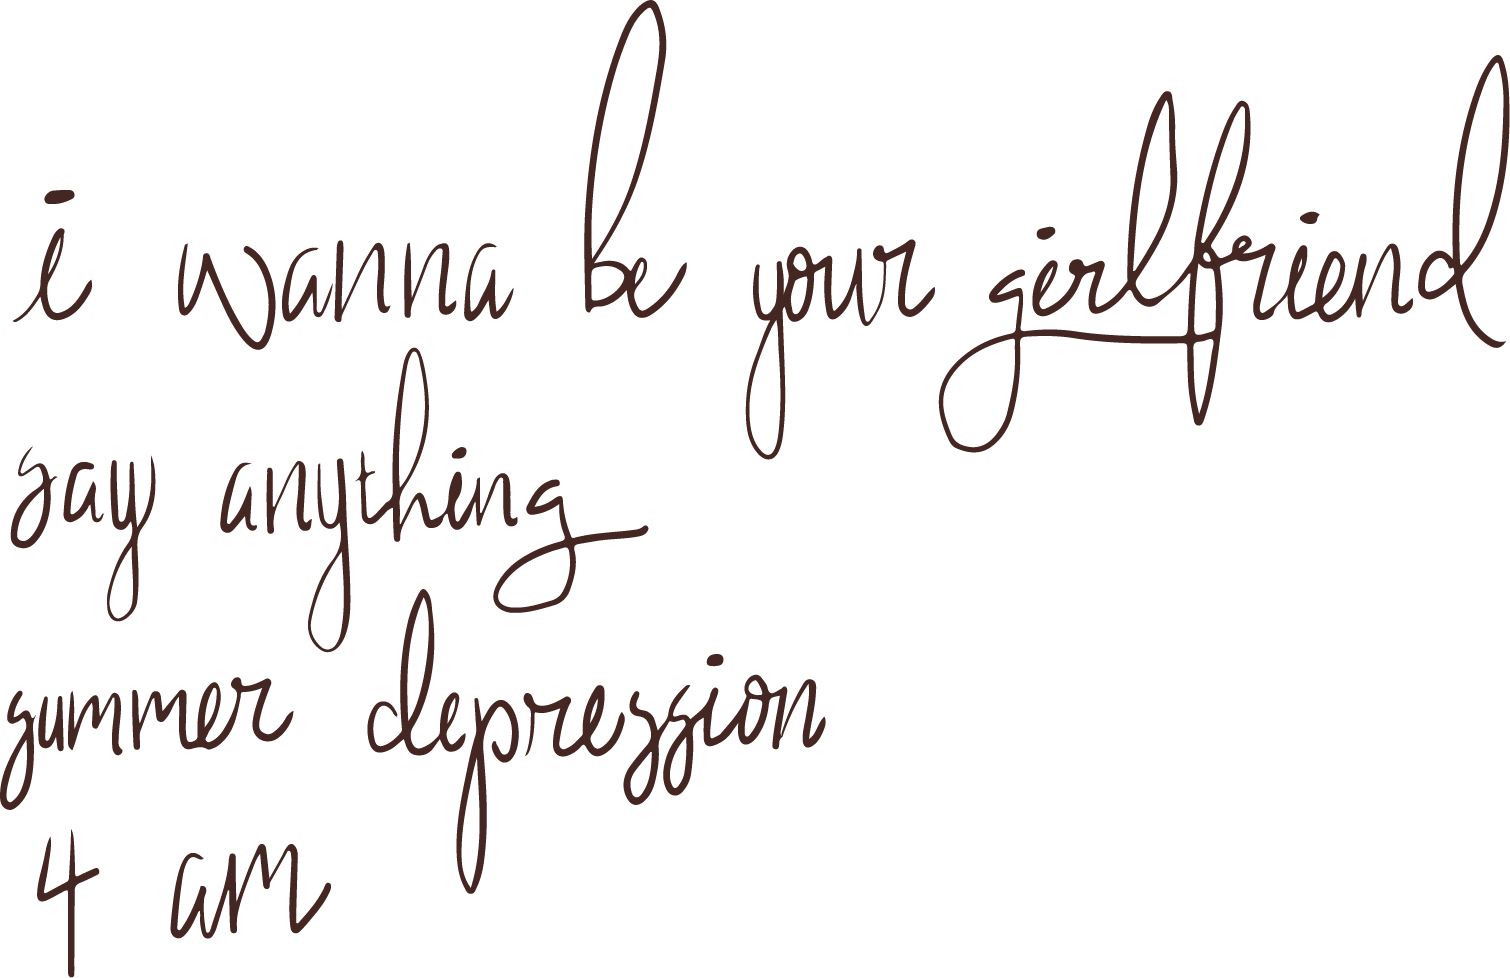 i wanna be your girlfriend
say anything
summer depression
4 am